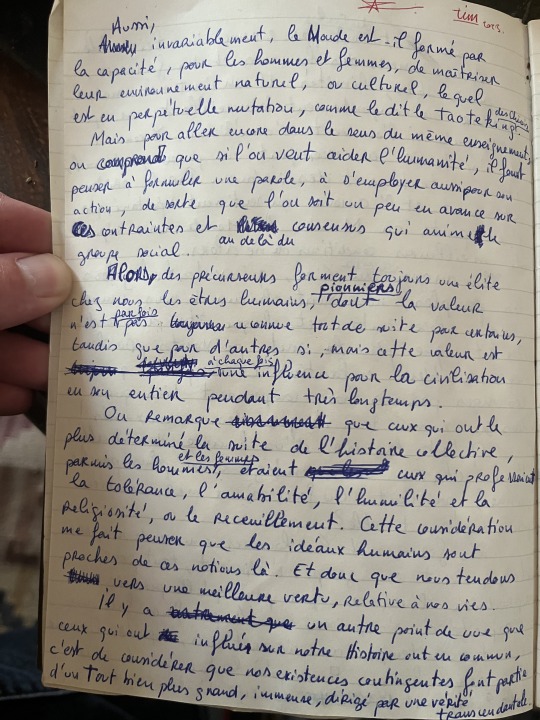 tim
Aussi,
invariablement, le Monde est-il formé par
la capacité, pour les hommes et femmes, de maîtriser
leur environnement naturel, ou culturel, lequel
est en perpétuelle mutation, comme le dit le Tao te King.
des Chinois
Mais pour aller encore dans le sens du même enseignement,
on comprend que si l'on veut aider l'humanité, il faut
penser à formuler une parole, à s'employer aussi pour son
action, de sorte que l'on soit un peu en avance sur
les contraintes et consensus qui anime le
au delà du
groupe social.
Alors, des précurseurs forment toujours une élite
pionniers
chez nous les êtres humains, dont la valeur
parfois
n'est pas reconnue tout de suite par certains,
tandis que par d'autres si, mais cette valeur est
à chaque fois
une influence pour la civilisation
en son entier pendant très longtemps.
On remarque que ceux qui ont le
plus déterminé la suite de l'histoire collective,
et les femmes
parmis les hommes, étaient ceux qui professaient
la tolérance, l'amabilité, l'humilité et la
religiosité, ou le receuillement. Cette considération
me fait penser que les idéaux humains sont
proches de ces notions là. Et donc que nous tendons
vers une meilleure vertu, relative à nos vies.
Il y a un autre point de vue que
ceux qui ont influés sur notre Histoire ont en commun,
c'est de considérer que nos existences contingentes font partie
d'un Tout bien plus grand, immense, dirigé par une vérité
transcendantale.